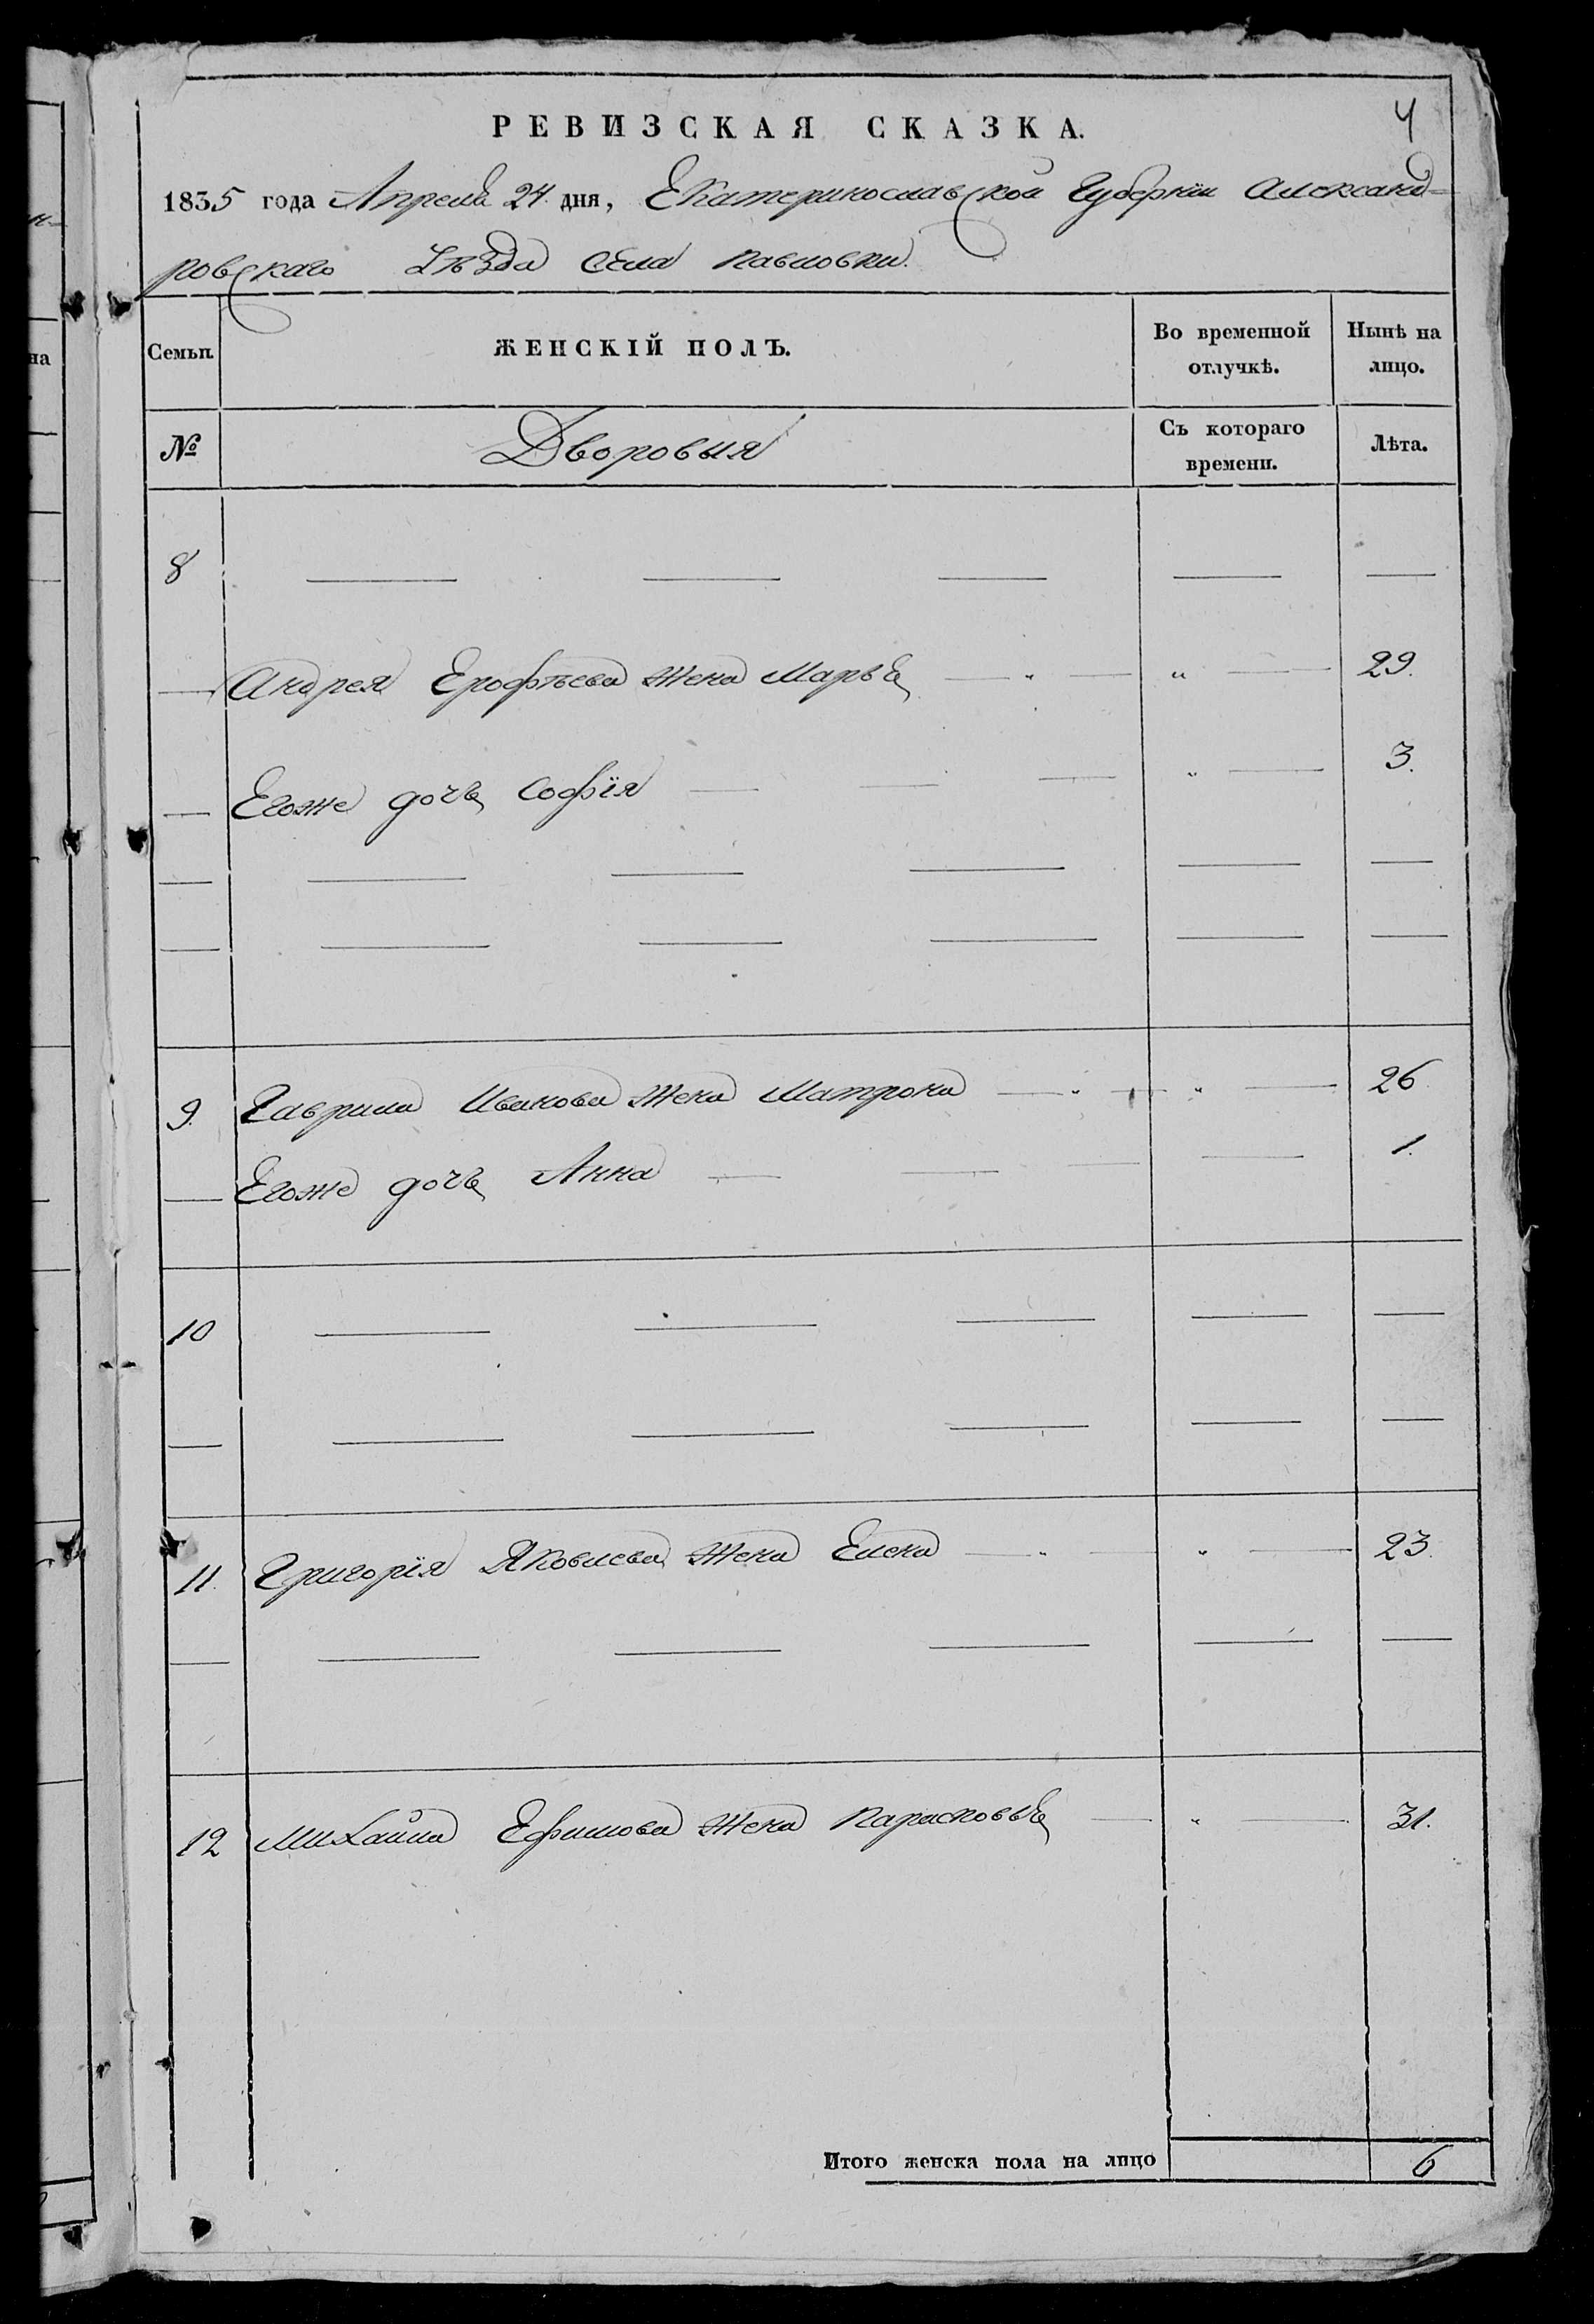 4
РЕВИЗСКАЯ СКАЗКА.
1835 года Апреля 24 дня, Екатеринославской Губернїи Александ-
ровскаго Уѣзда Села Павловки.
Семьи.
ЖЕНСКІЙ ПОЛЪ.
Во временной отлучкѣ.
Нынѣ на лицо.
№
Дворовыя
Съ котораго времени.
Лѣта.
8
Андрея Ерофѣева жена Марья 29.
Егоже дочь Софїя 3.
9. Гаврила Иванова жена Матрона 26
Егоже дочь Анна 1.
10
11. Григорїя Яковлева жена Елена 23.
12 Михайла Ефимова жена Парасковья 31.
Итого женска пола на лицо 6